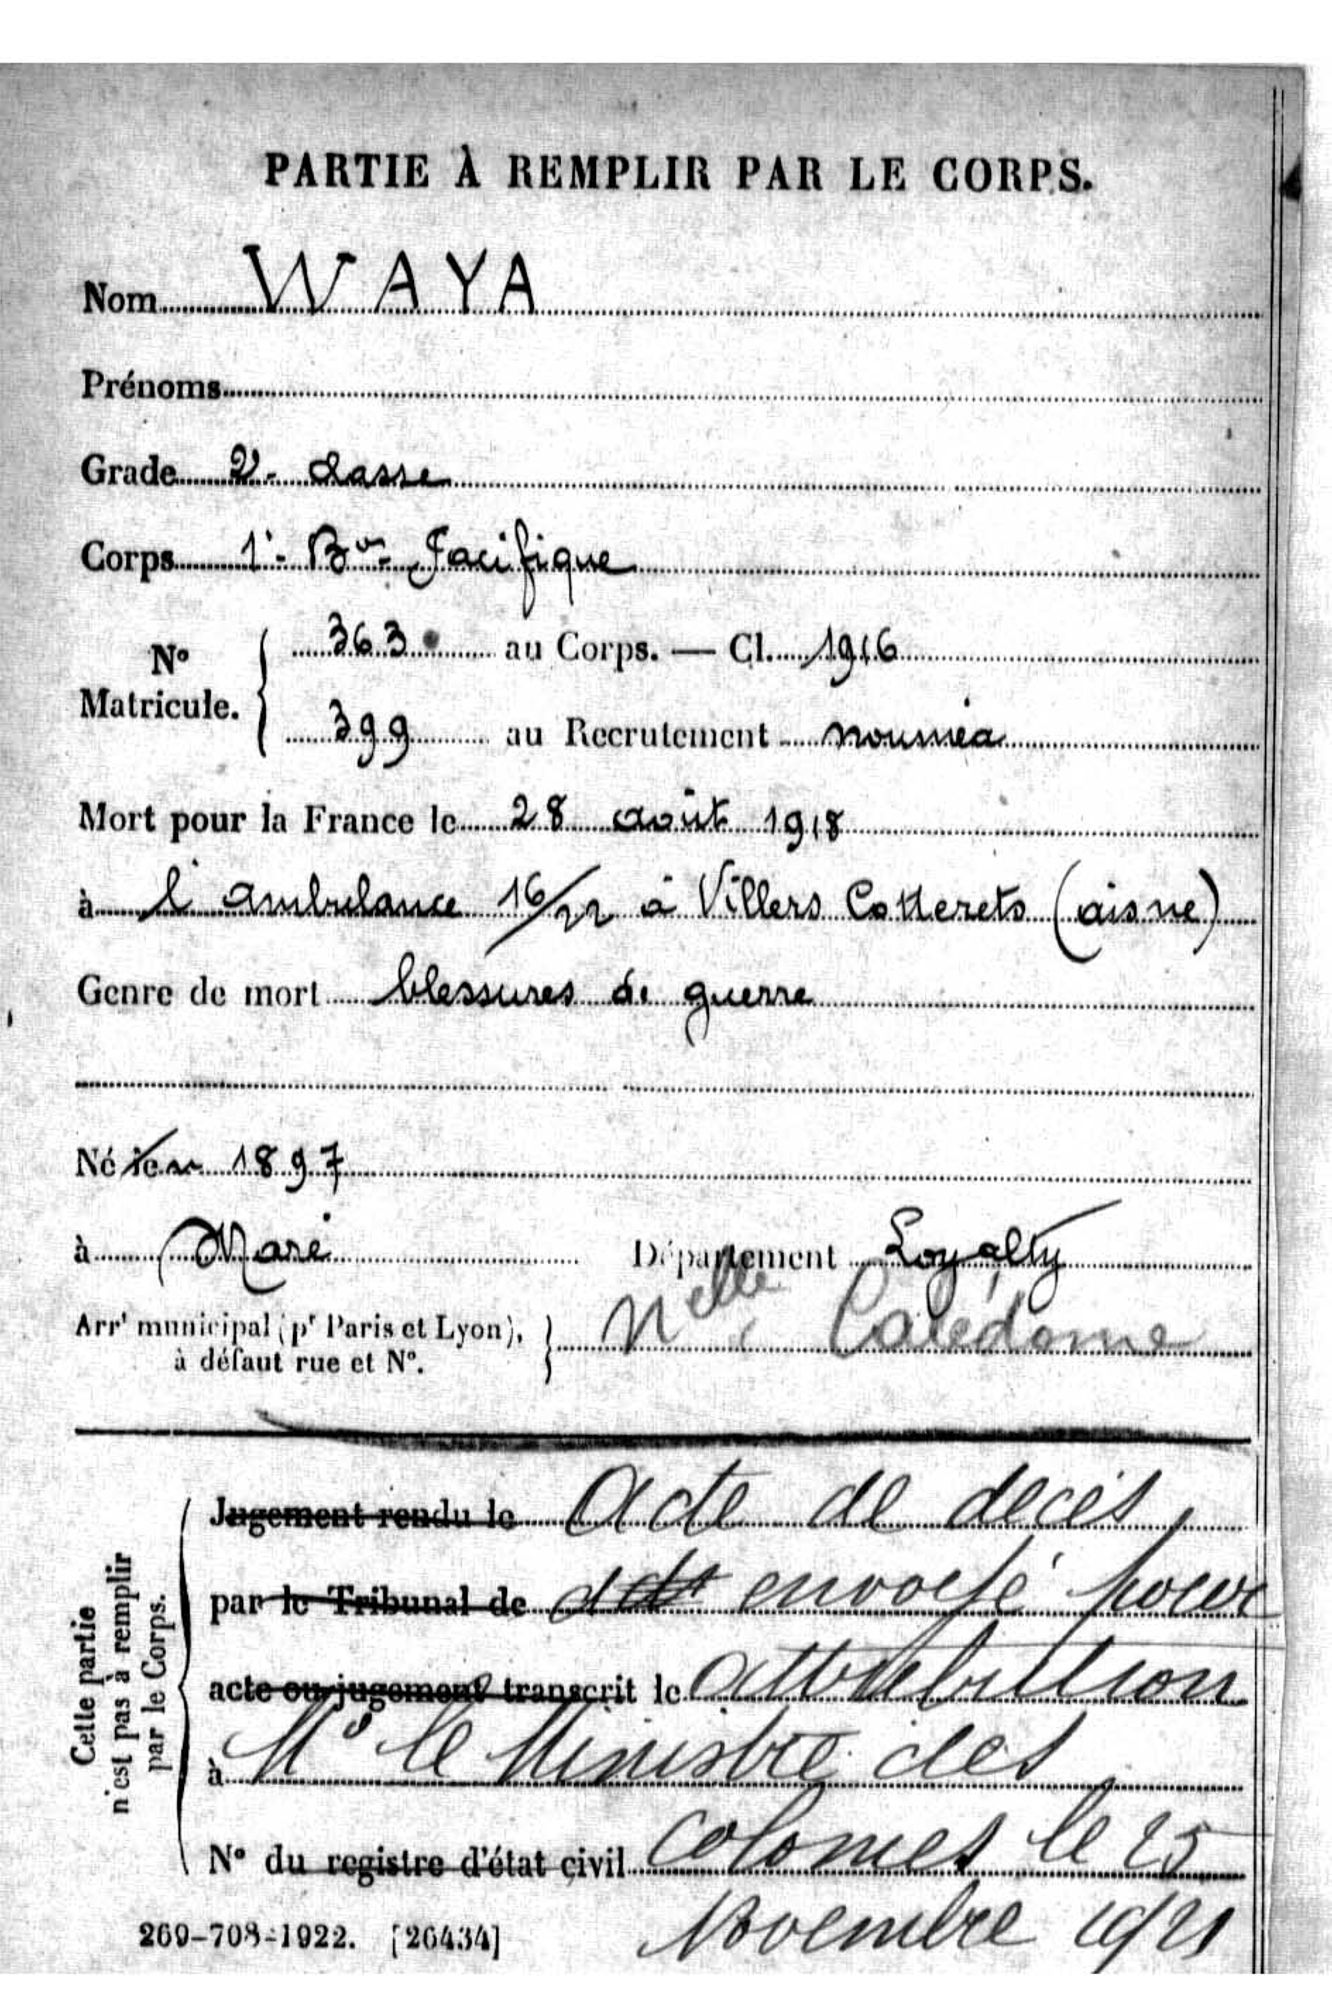 PARTIE À REMPLIR PAR LE CORPS.
Nom WAYA
Prénoms
Grade 2e classe
Corps 1e Bon Pacifique
No Matricule. 363 au Corps. — Cl. 1916
399 au Recrutement nouméa
Mort pour la France le 28 août 1918
à l'ambulance 16/22 à Villers Cotterets (aisne)
Genre de mort blessures de guerre
Né le en 1897
à Maré Département Loyalty
Arrt municipal (pr Paris et Lyon), à défaut rue et No. Nelle Calédonie
Cette partie n'est pas à remplir par le Corps.
Jugement rendu le Acte de decès
par le Tribunal de envoyé pour
acte ou jugement transcrit le attribution
à Mr le Ministre des
No du registre d'état civil Colonies le 25
Novembre 1921
269-708-1922. [26434]